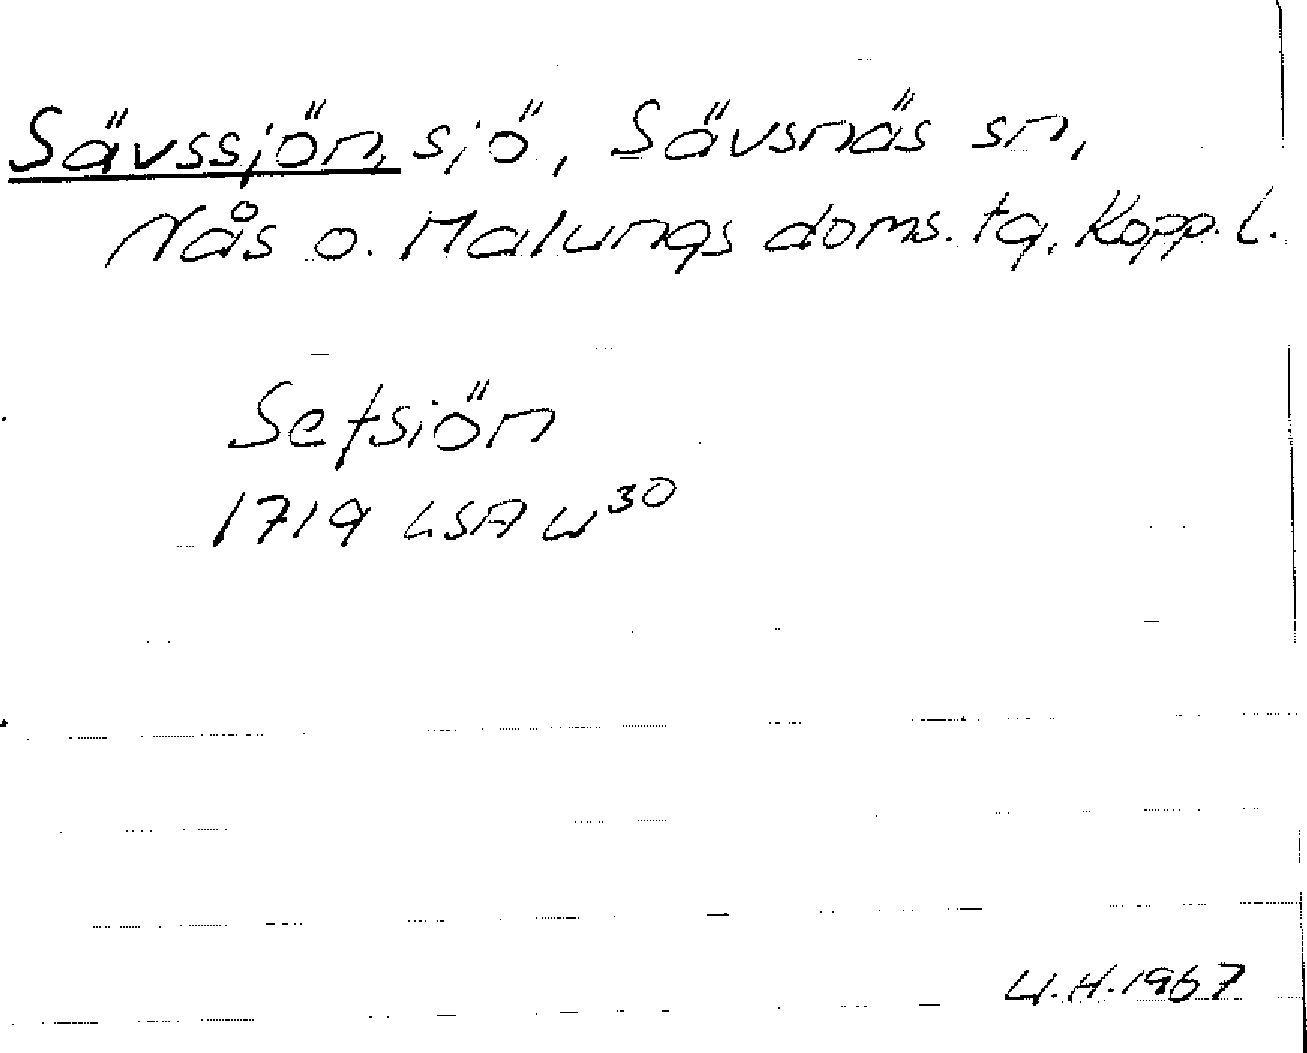 Sävssjön, sjö, Sävsnäs sn,
Nås o. Malungs doms. tg, Kopp. l.
Sefsiön
1719 LSA W 30
W.H. 1967